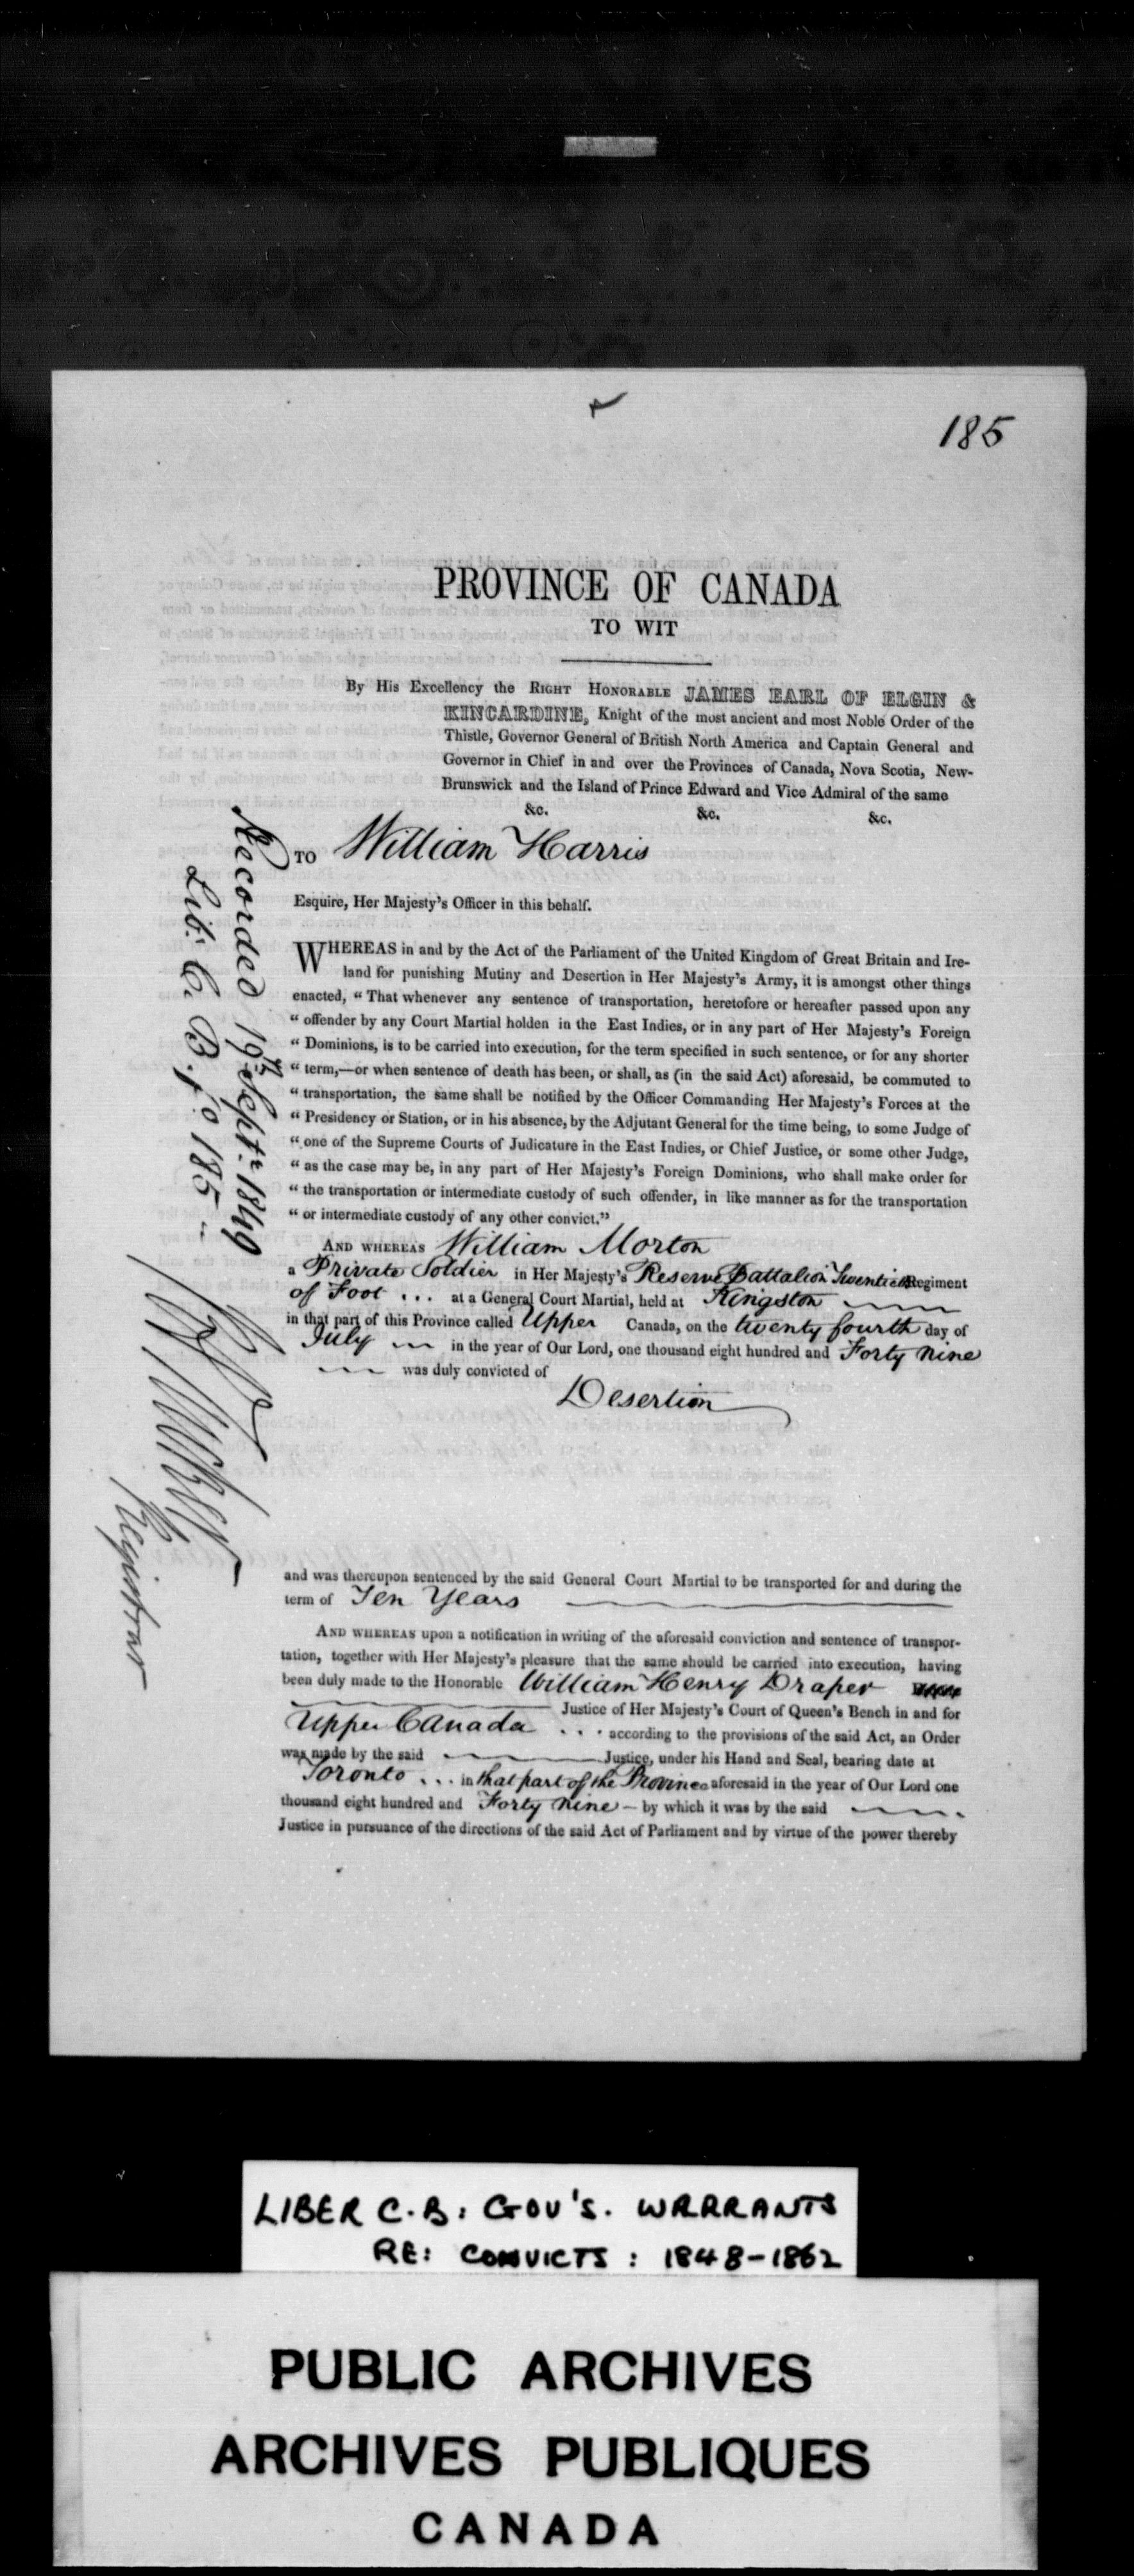 185
PROVINCE OF CANADA
TO WIT
By His Excellency the Right Honorable JAMES EARL OF ELGIN &
KINCARDINE, Knight of the most ancient and most Noble Order of the
Thistle, Governor General of British North America and Captain General and
Governor in Chief in and over the Provinces of Canada, Nova Scotia, New-
Brunswick and the Island of Prince Edward and Vice Admiral of the same
&c. &c. &c.
TO William Harris
Esquire, Her Majesty's Officer in this behalf.
WHEREAS in and by the Act of the Parliament of the United Kingdom of Great Britain and Ire-
land for punishing Mutiny and Desertion in Her Majesty's Army, it is amongst other things
enacted, “ That whenever any sentence of transportation, heretofore or hereafter passed upon any
“ offender by any Court Martial holden in the East Indies, or in any part of Her Majesty's Foreign
“ Dominions, is to be carried into execution, for the term specified in such sentence, or for any shorter
“ term,—or when sentence of death has been, or shall, as (in the said Act) aforesaid, be commuted to
“ transportation, the same shall be notified by the Officer Commanding Her Majesty's Forces at the
“ Presidency or Station, or in his absence, by the Adjutant General for the time being, to some Judge of
“ one of the Supreme Courts of Judicature in the East Indies, or Chief Justice, or some other Judge,
“ as the case may be, in any part of Her Majesty's Foreign Dominions, who shall make order for
“ the transportation or intermediate custody of such offender, in like manner as for the transportation
“ or intermediate custody of any other convict.”
AND WHEREAS William Morton
a Private Soldier in Her Majesty's Reserve Battalion Twentieth Regiment
of Foot ... at a General Court Martial, held at Kingston
in that part of this Province called Upper Canada, on the twenty fourth day of
July in the year of Our Lord, one thousand eight hundred and Forty Nine
was duly convicted of
Desertion
and was thereupon sentenced by the said General Court Martial to be transported for and during the
term of Ten Years
AND WHEREAS upon a notification in writing of the aforesaid conviction and sentence of transpor-
tation, together with Her Majesty's pleasure that the same should be carried into execution, having
been duly made to the Honorable William Henry Draper
Justice of Her Majesty's Court of Queen's Bench in and for
Upper Canada . . . according to the provisions of the said Act, an Order
was made by the said Justice, under his Hand and Seal, bearing date at
Toronto ... in that part of the Province aforesaid in the year of Our Lord one
thousand eight hundred and Forty Nine — by which it was by the said
Justice in pursuance of the directions of the said Act of Parliament and by virtue of the power thereby
Recorded 19th Septr. 1849
Lib: C. B. fo 185
Registrar
LIBER C.B: GOV'S. WARRANTS
RE: CONVICTS: 1848-1862
PUBLIC ARCHIVES
ARCHIVES PUBLIQUES
CANADA